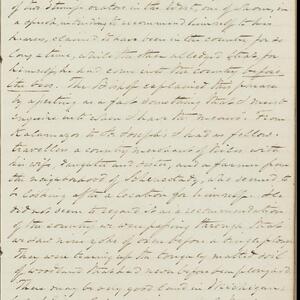 of our stump orators in the West, one of whom, in
a speech intending to recommend himself to his
hearers, claimed to have been in the country for so
long a time, while the other alleged that for
himself, he had come into the country before
the bees. The Bishop explained this phrase
by asserting as a fact something that I must
inquire into when I have the means. From
Kalamazoo to St. Joseph's I had as fellow
travellers a country merchant of Niles with
his wife, daughter and sister, and a farmer from
the neighborhood of Schenectady, who seemed to
be looking after a location for himself. He
did not seem to regard it as a recommendation
of the country we were passing through that
we saw nine yoke of oxen before a single plough.
They were tearing up the tough matted soil
of woodland that had never before been ploughed.
There may be very good land in Michigan